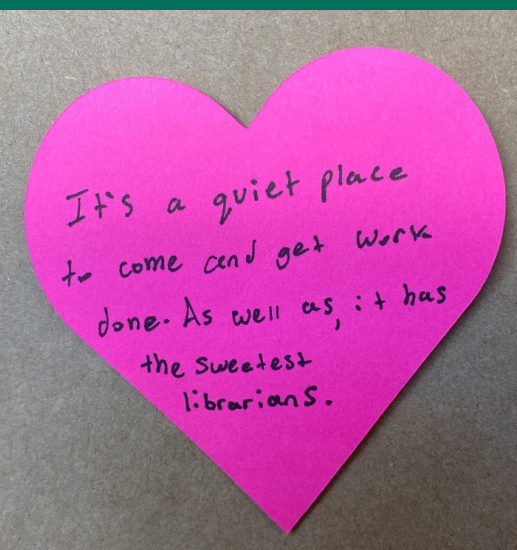 It's a quiet place
to come and get work
done. As well as, it has
the sweetest
librarians.